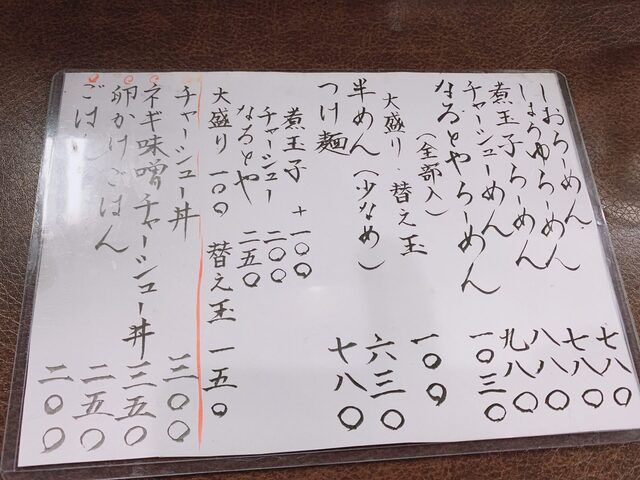 しおらーめん 七八〇
しょうゆらーめん 七八〇
煮玉子らーめん 八八〇
チャーシューめん 九八〇
なるとやらーめん 一〇三〇
(全部入)
大盛り・替え玉 一〇〇
半めん(少なめ) 六三〇
つけ麺 七八〇
煮玉子 +一〇〇
チャーシュー 二〇〇
なるとや 二五〇
大盛り 一〇〇 替え玉 一五〇
チャーシュー丼 三〇〇
ネギ味噌チャーシュー丼 三五〇
卵かけごはん 二五〇
ごはん 二〇〇